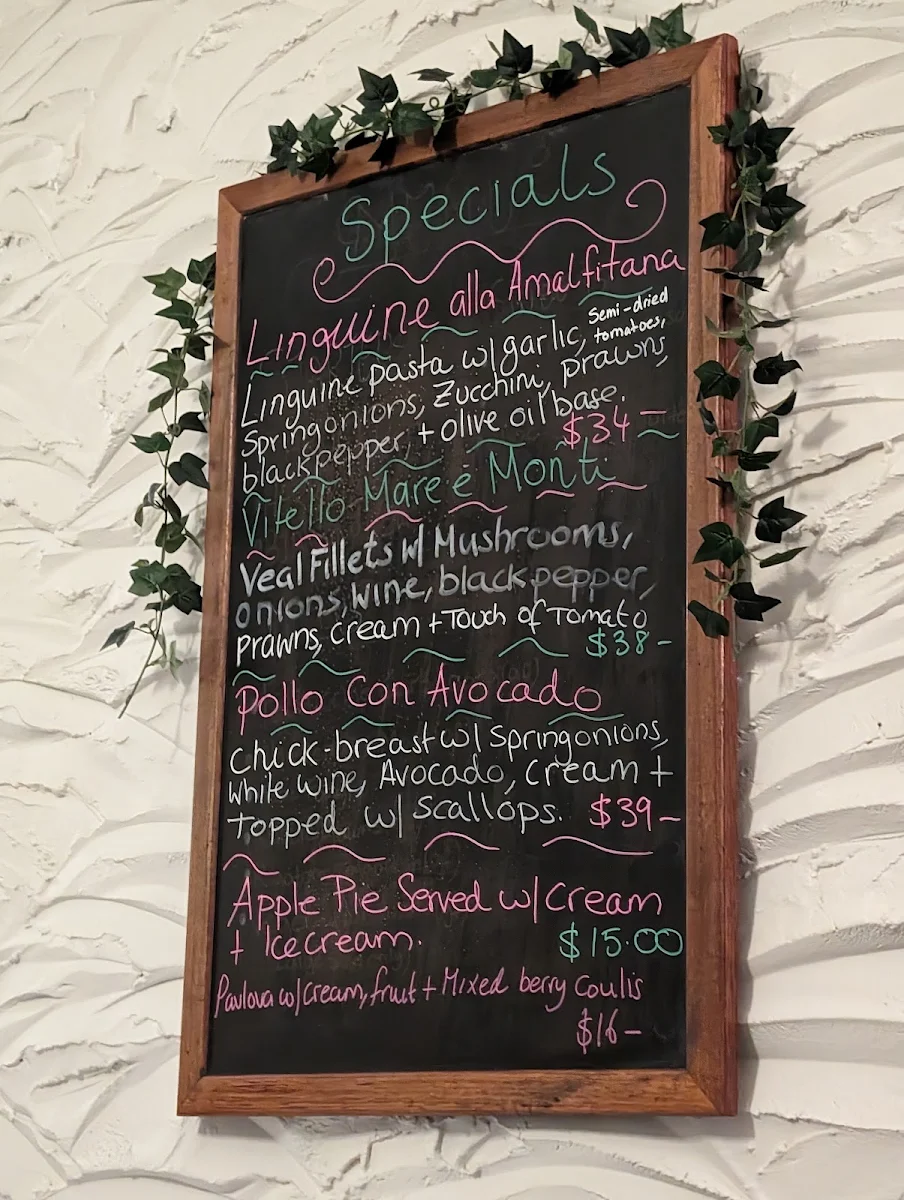 Specials
Linguine alla Amalfitana
Linguine pasta w/ garlic, Semi-dried tomatoes,
Springonions, Zucchini, prawns,
blackpepper, + olive oil base.
$34 -
Vitello Mare e Monti
Veal Fillets w/ Mushrooms,
onions, wine, black pepper,
prawns, cream + Touch of Tomato
$38 -
Pollo Con Avocado
Chick-breast w/ Springonions,
white wine, Avocado, cream +
Topped w/ Scallops. $39 -
Apple Pie Served w/ Cream
+ Icecream. $15.00
Pavlova w/ cream, fruit + Mixed berry Coulis
$16 -